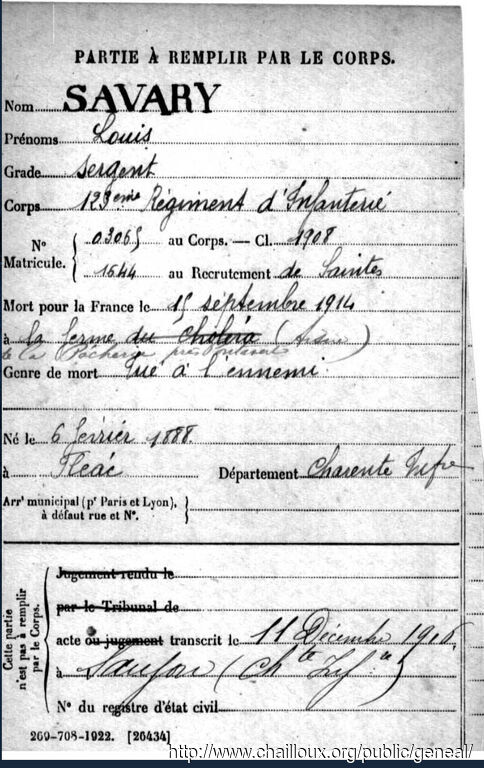 PARTIE À REMPLIR PAR LE CORPS.
Nom SAVARY
Prénoms Louis
Grade Sergent
Corps 123ème Régiment d'Infanterie
N° Matricule. 03065 au Corps. — Cl. 1908
1644 au Recrutement de Saintes
Mort pour la France le 15 septembre 1914
à la ferme du Choléra (Aisne)
de la Pêcherie près Pontavert
Genre de mort Tué à l'ennemi
Né le 6 février 1888
à Département Charente Infre
Arrt municipal (pr Paris et Lyon),
à défaut rue et N°.
Cette partie n'est pas à remplir par le Corps.
Jugement rendu le
par le Tribunal de
acte ou jugement transcrit le 11 Décembre 1916
à Saujon (Chte Infre)
N° du registre d'état civil
269-708-1922. [26434]
http://www.chailloux.org/public/geneal/